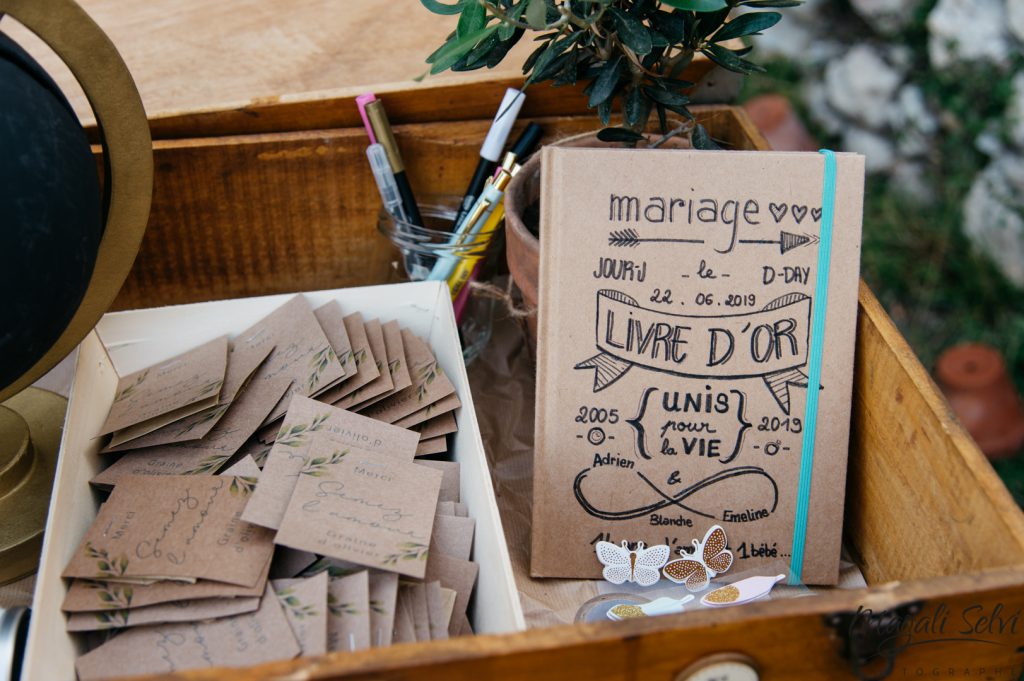 mariage
JOUR-J - le - D-DAY
22.06.2019
LIVRE D'OR
2005 { UNIS pour la VIE } 2019
Adrien
&
Blanche Emeline
1 bébé...
Merci
Semez
l'amour
Graine
d'olivier
d'olivier
Merci
Semez
l'amour
Graine
d'olivier
Magali Selvi
PHOTOGRAPHE